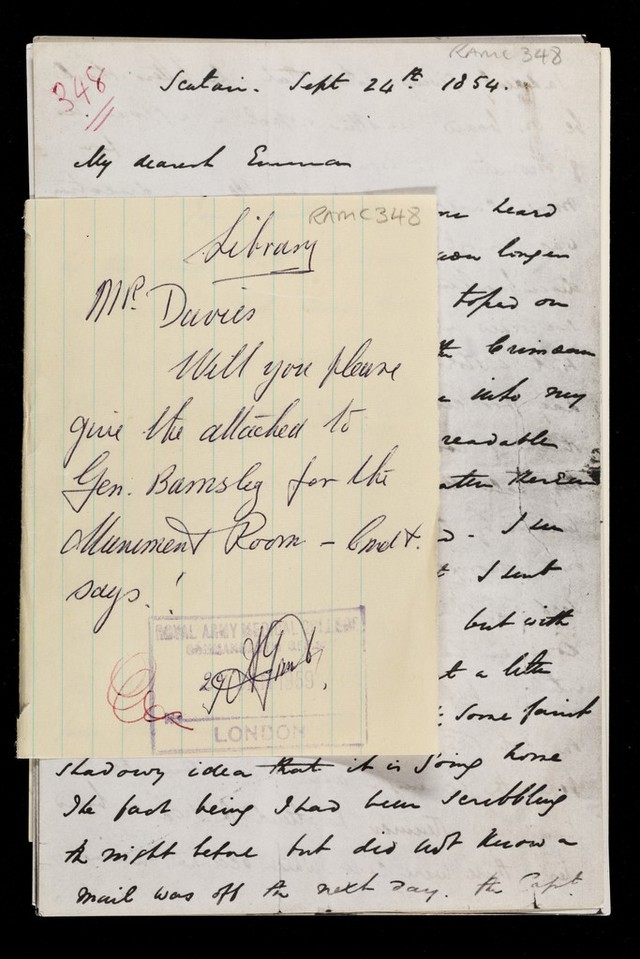 RAMC 348
348
Scutari. Sept 24th 1854.
My dearest Emma
heard
longer
on
Crimean
into my
readable
I sent
but with
a
some faint
shadowy idea that it is going home
The fact being I had been scribbling
the night before but did not know a
mail was off the next day. the Capt.
RAMC 348
Library
Mr. Davies
Will you please
give the attached to
Gen. Barnsley for the
Muniment Room - Cmdt.
says!
ROYAL ARMY MEDICAL COLLEGE
29
LONDON